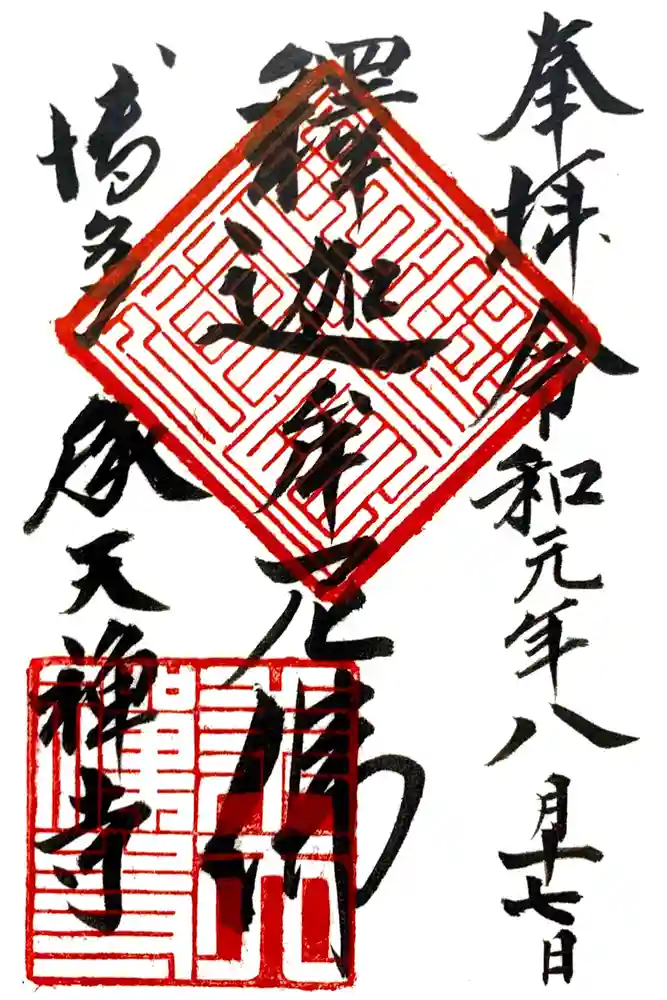 奉拝 令和元年八月十七日
釋迦牟尼佛
博多 承天禅寺